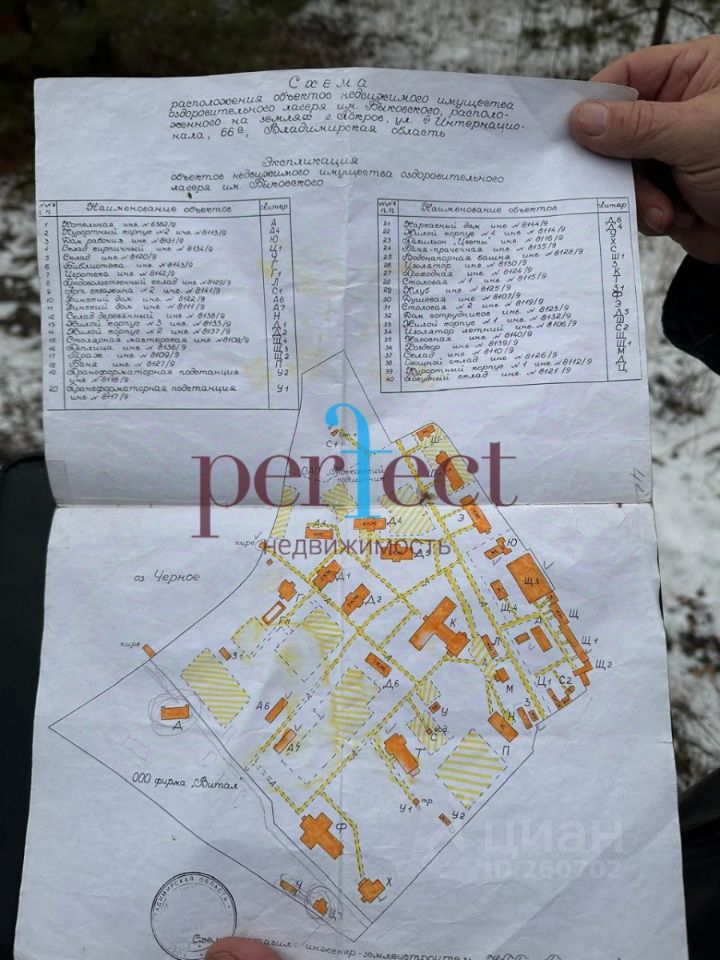 Схема
расположения объектов недвижимого имущества
оздоровительного лагеря им. Быковского, располо-
женного на землях г. Покров, ул. III Интернацио-
нала, 66а, Владимирская область
Экспликация
объектов недвижимого имущества оздоровительного
лагеря им. Быковского
№№ п.п. Наименование объектов Литер
1 Котельная инв. № 6362/9 А
2 Курортный корпус №2 инв. № 8113/9 Д4
3 Дом рабочих инв. № 8131/9 Ю
4 Склад кирпичный инв. № 8134/9 Ц1
5 Склад инв. № 8120/9
6 Библиотека инв. № 8143/9
7 Игротека инв. № 8142/9 Г1
8 Продовольственный склад инв. № 8129/9 Л
9 Арт. скважина №2 инв. № 8141/9 С1
10 Финский дом инв. № 8122/9 А6
11 Финский дом инв. № 8111/9 Д7
12 Склад деревянный инв. № 8138/9 Н
13 Жилой корпус №3 инв. № 8135/9 Д1
14 Жилой корпус №2 инв. № 8137/9 Д2
15 Столярная мастерская инв. № 8108/9 Щ4
16 Теплица инв. № 8136/9 Щ3
17 Гараж инв. № 8109/9 Щ2
18 Баня инв. № 8127/9 П
19 Трансформаторная подстанция У2
инв. № 8118/9
20 Трансформаторная подстанция У1
инв. № 8117/9
№№ п.п. Наименование объектов Литер
21 Каркасный дом инв. № 8144/9 Д5
22 Жилой корпус №4 инв. № 8114/9
23 Павильон Цветы инв. № 8116/9
24 Баня-прачечная инв. № 8135/9 Х
25 Водонапорная башня инв. № 8128/9 С
26 Изолятор инв. № 8130/9 Ш1
27 Проходная инв. № 8124/9 З
28 Столовая №1 инв. № 8115/9 К
29 Клуб инв. № 8125/9 Т
30 Душевая инв. № 8107/9 З1
31 Столовая №2 инв. № 8119/9 Ф
32 Дом сотрудников инв. № 8123/9 Э
33 Жилой корпус №1 инв. № 8132/9 Д5
34 Изолятор летний инв. № 8106/9 Ш
35 Насосная инв. № 8140/9 С2
36 Коздвор инв. № 8139/9 Щ
37 Склад инв. № 8110/9 Щ1
38 Овощной склад инв. № 8126/9 М
39 Курортный корпус №1 инв. № 8112/9 Д
40 Посудный склад инв. № 8121/9 Ц
С1
Ш
ОАО "Московский
подшипник"
perfect
недвижимость
Д4
Э
Ю
Д5
пирс
оз. Черное
Д1
Д2
Щ3
Щ4
Щ
К
Л
Щ1
Щ2
пирс
З1
Д6
М
Ц1
С2
Д
А6
А4
У
С
Н
З
П
Т
ООО фирма "Витал"
У1
тр.
У2
Ф
Х
Ч
циан
ID 260702
ВЛАДИМИРСКАЯ ОБЛАСТЬ
Схему составил: инженер-землеустроитель